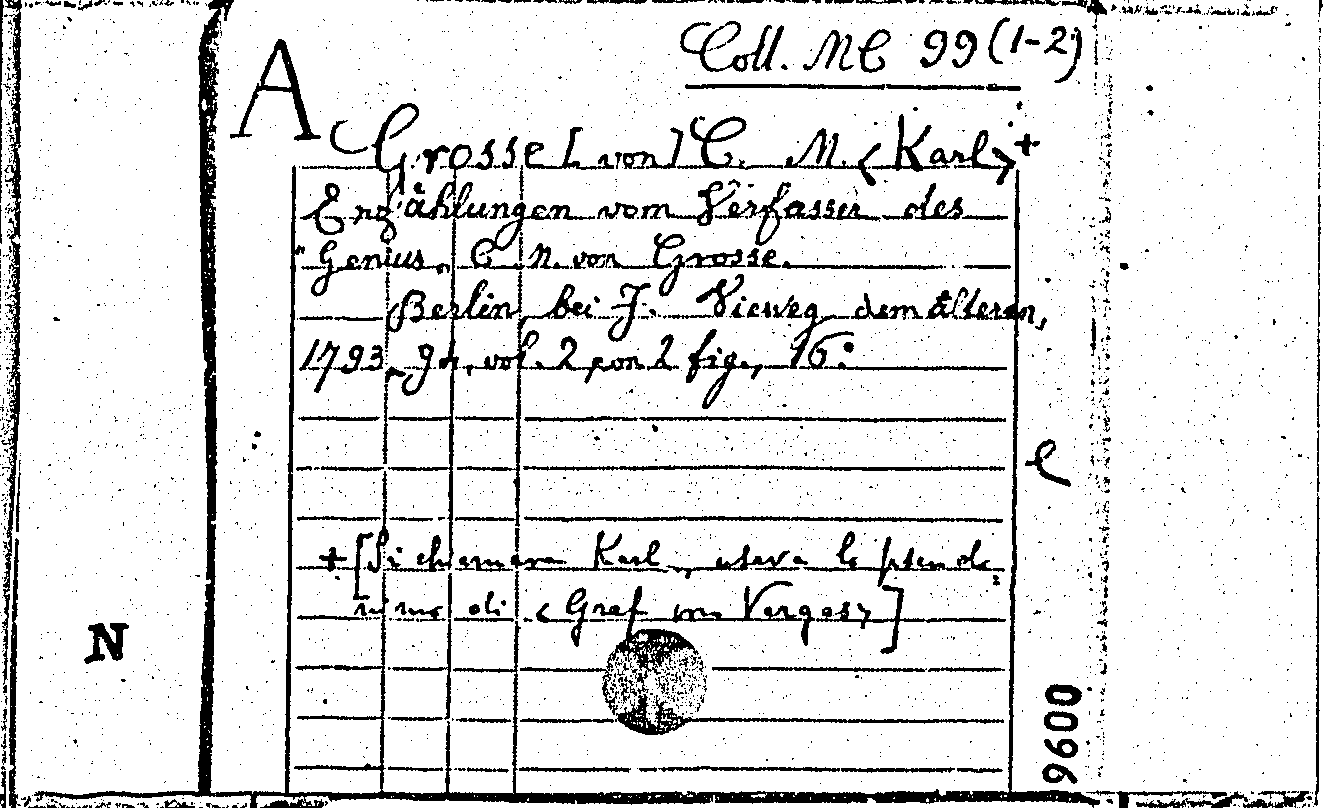 Coll. MC 99(1-2)
A
Grosse [von] C. M. <Karl>+
Erzählungen vom Verfasser des
"Genius" C. M. von Grosse.
Berlin, bei J. Vieweg dem älteren,
1793, vol. 2 con 2 fig., 16°
+[Si chiamava Karl, usava lo pseudo=
nimo di <Graf von Vargas>]
N
0096